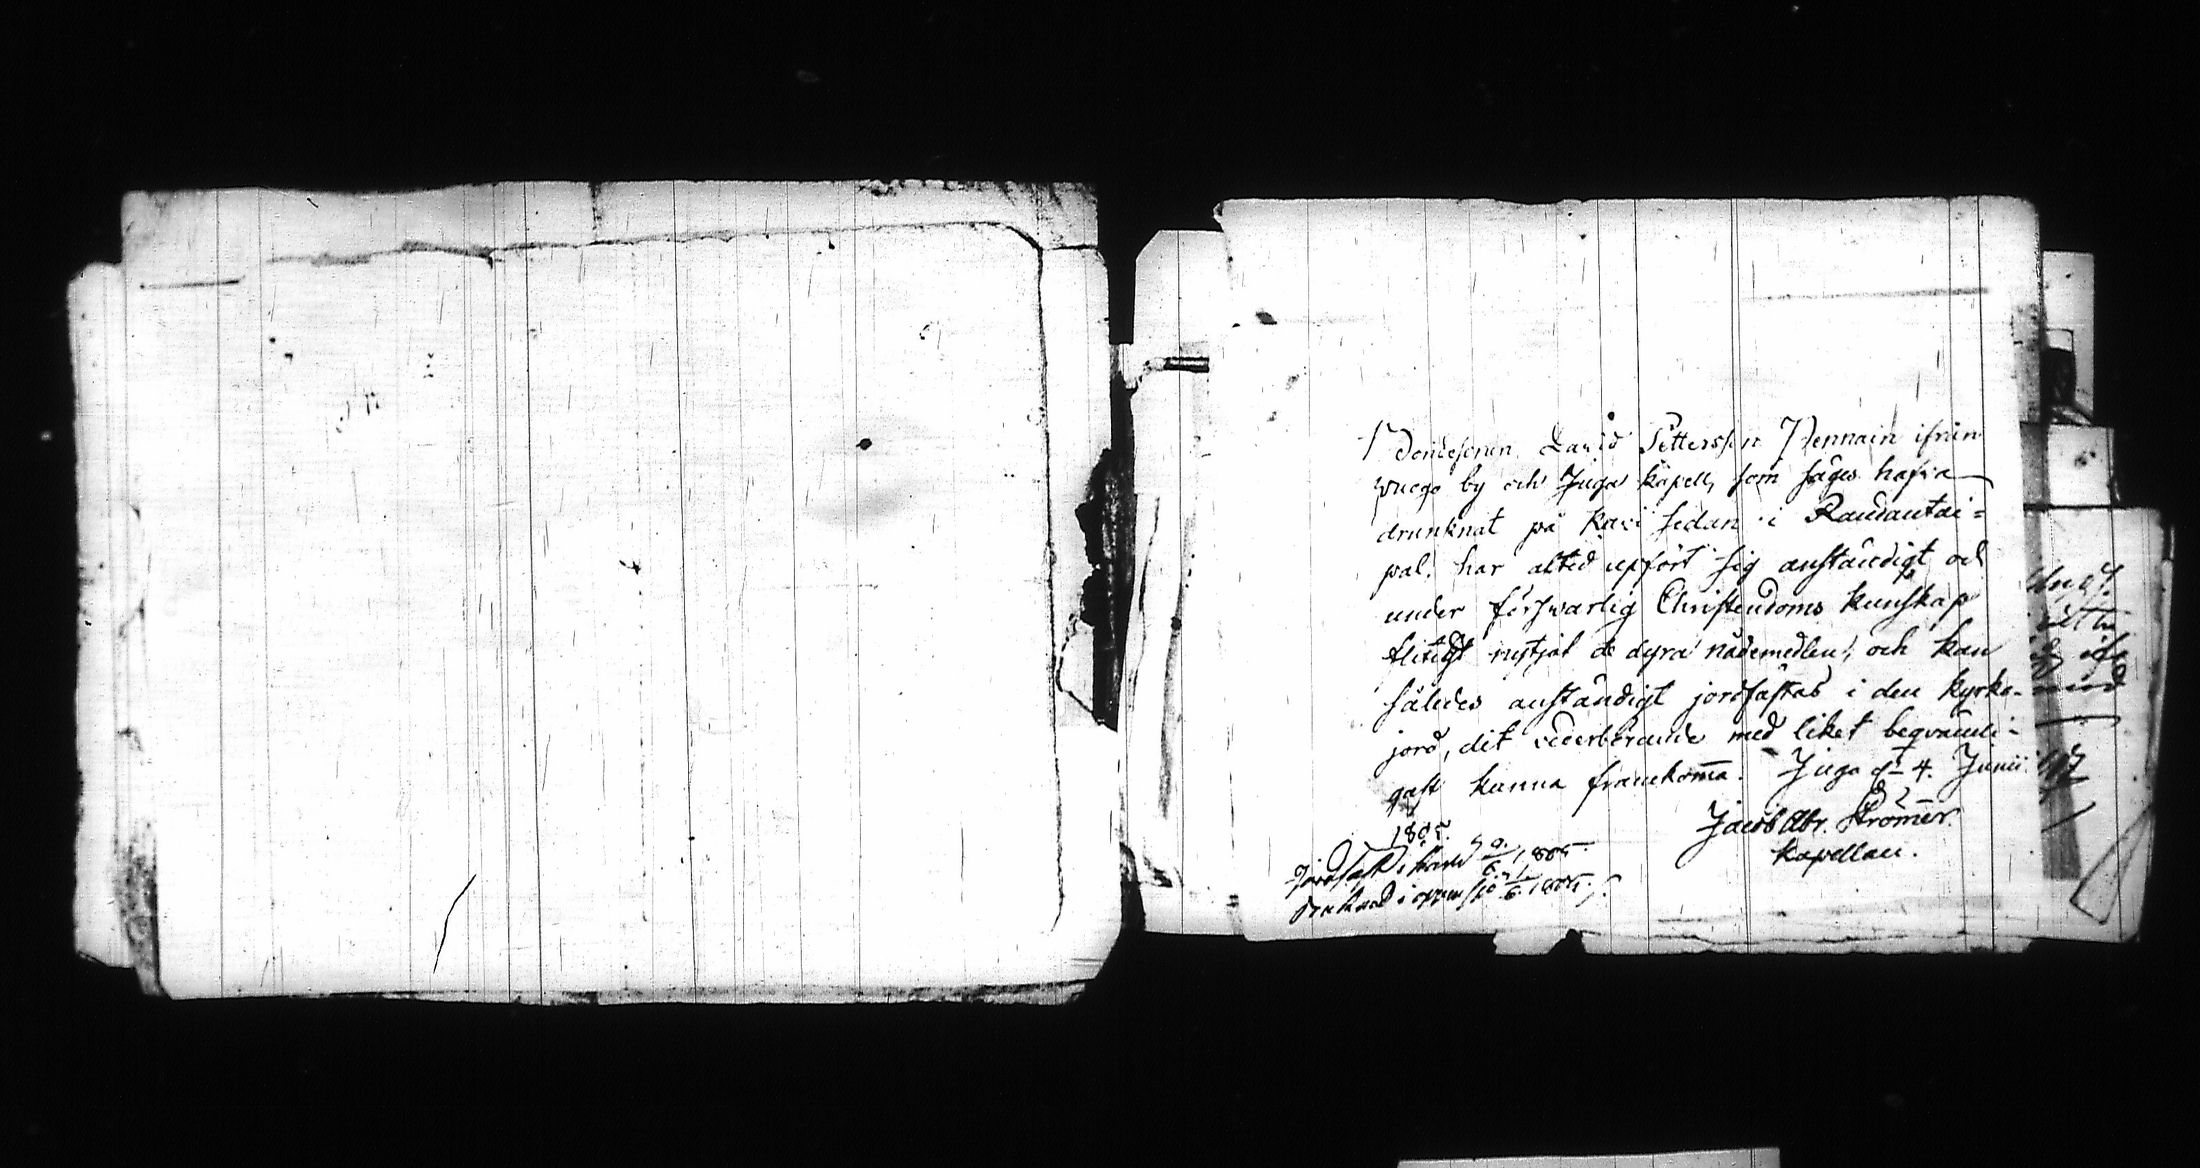 Bondesonen David Pettersson Pennain ifrån
by och Juga kapell, som säges hafva
drunknat på kari sedan i Randantai=
pal. har altid upfört sig anständigt och
under försvarlig Christendoms kunskap
flitigt nyttjat de dyra nådemedlen; och kan
således anständigt jordfästas i den kyrko-
jord, dit vederbörande med liket beqvämli-
gast kunna framkomma. Juga d. 4. Junii
1805.
Jacob Abr. Strömer.
kapellan.
Jordfäst i 9/6 1805.